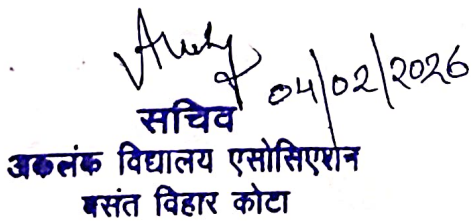 04/02/2026
सचिव
अकलंक विद्यालय एसोसिएशन
बसंत विहार कोटा